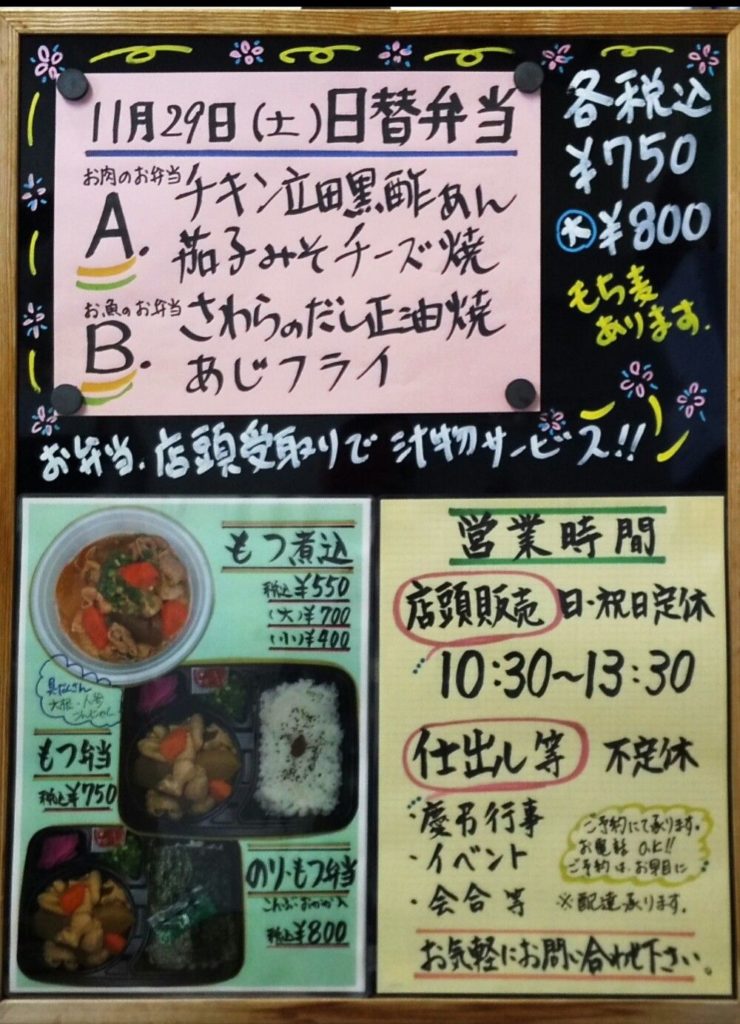 11月29日(土)日替弁当
お肉のお弁当
A.
チキン立田黒酢あん
茄子みそチーズ焼
お魚のお弁当
B.
さわらのだし正油焼
あじフライ
各税込
¥750
大 ¥800
もち麦
あります.
お弁当.店頭受取りで 汁物サービス!!
もつ煮込
税込¥550
(大)¥700
(小)¥400
具だくさん
大根・人参
こんにゃく
もつ弁当
税込¥750
のり・もつ弁当
こんぶ・おかか入
税込¥800
営業時間
店頭販売 日・祝日定休
10:30~13:30
仕出し等 不定休
・慶弔行事
・イベント
・会合等
ご予約にて承ります.
お電話O.K!!
ご予約は、お早目に
※配達承ります.
お気軽にお問い合わせ下さい。